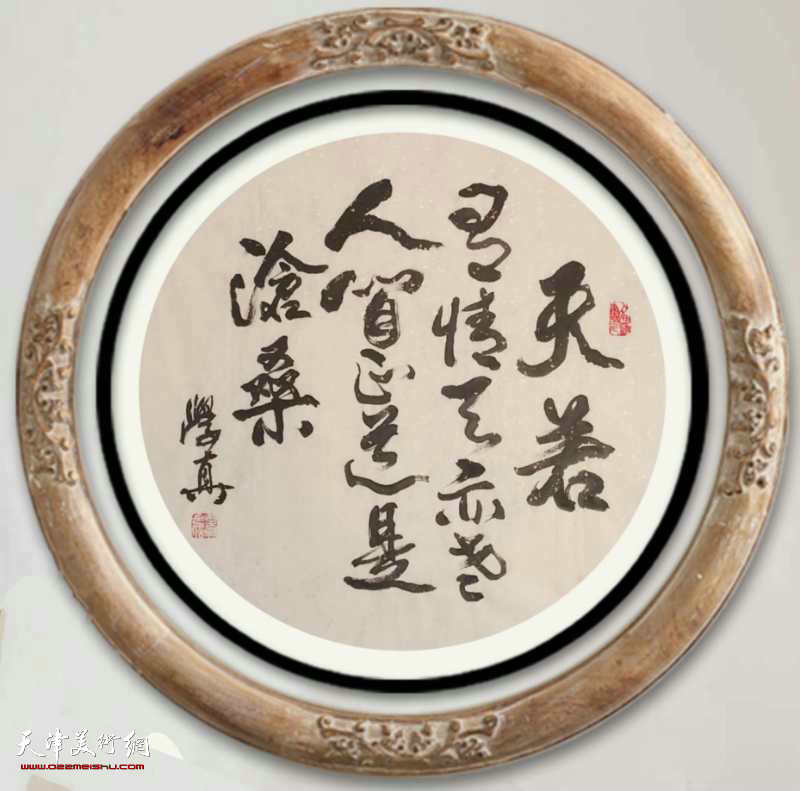 天若
有情天亦老
人間正道是
滄桑
學真
天津美術網
www.022meishu.com